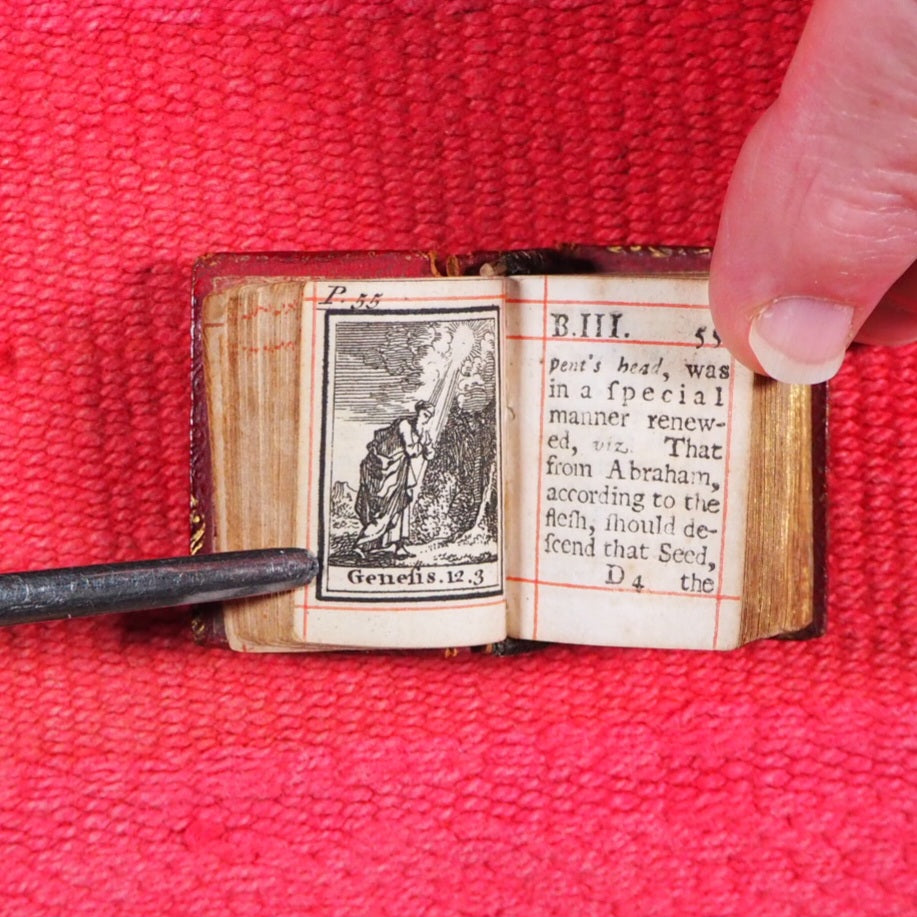 P. 55
Geneſis.12.3
B.III. 55
pent's head, was
in a ſpecial
manner renew-
ed, viz. That
from Abraham,
according to the
fleſh, ſhould de-
ſcend that Seed,
D 4 the